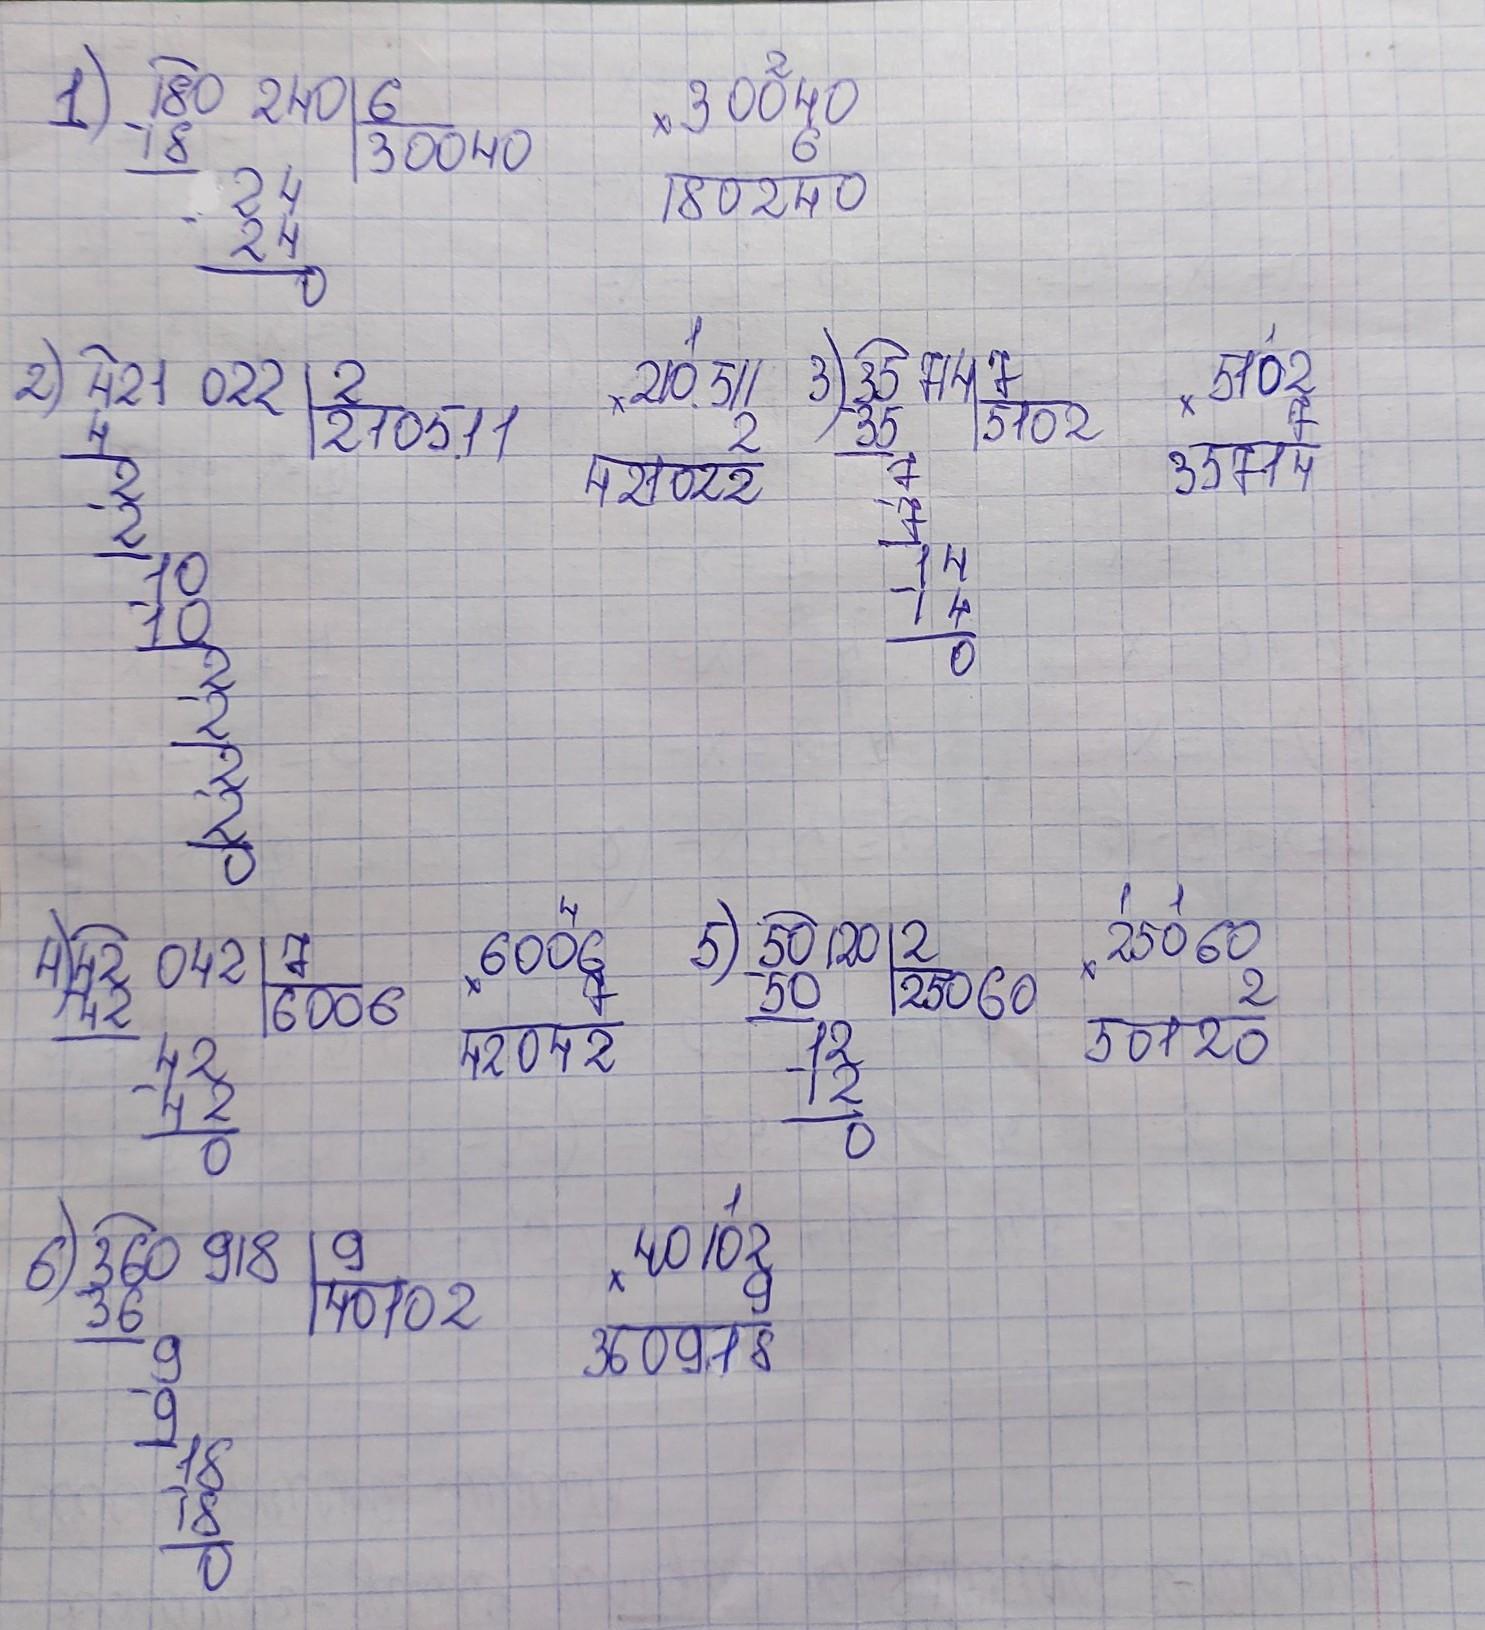 1) 180 240 | 6      2
-18 | 30040      × 30040
24      6
- 24      180240
0
2) 421 022 | 2      1
4 | 210511      × 210511
2      2
- 2      421022
10
- 10
2
- 2
2
- 2
0
3) 35 714 | 7      1
- 35 | 5102      × 5102
7      7
- 7      35714
14
- 14
0
4) 42 042 | 7      4
- 42 | 6006      × 6006
42      7
- 42      42042
0
5) 50 120 | 2      1 1
- 50 | 25060      × 25060
12      2
- 12      50120
0
6) 360 918 | 9      1
- 36 | 40102      × 40102
9      9
- 9      360918
18
- 18
0